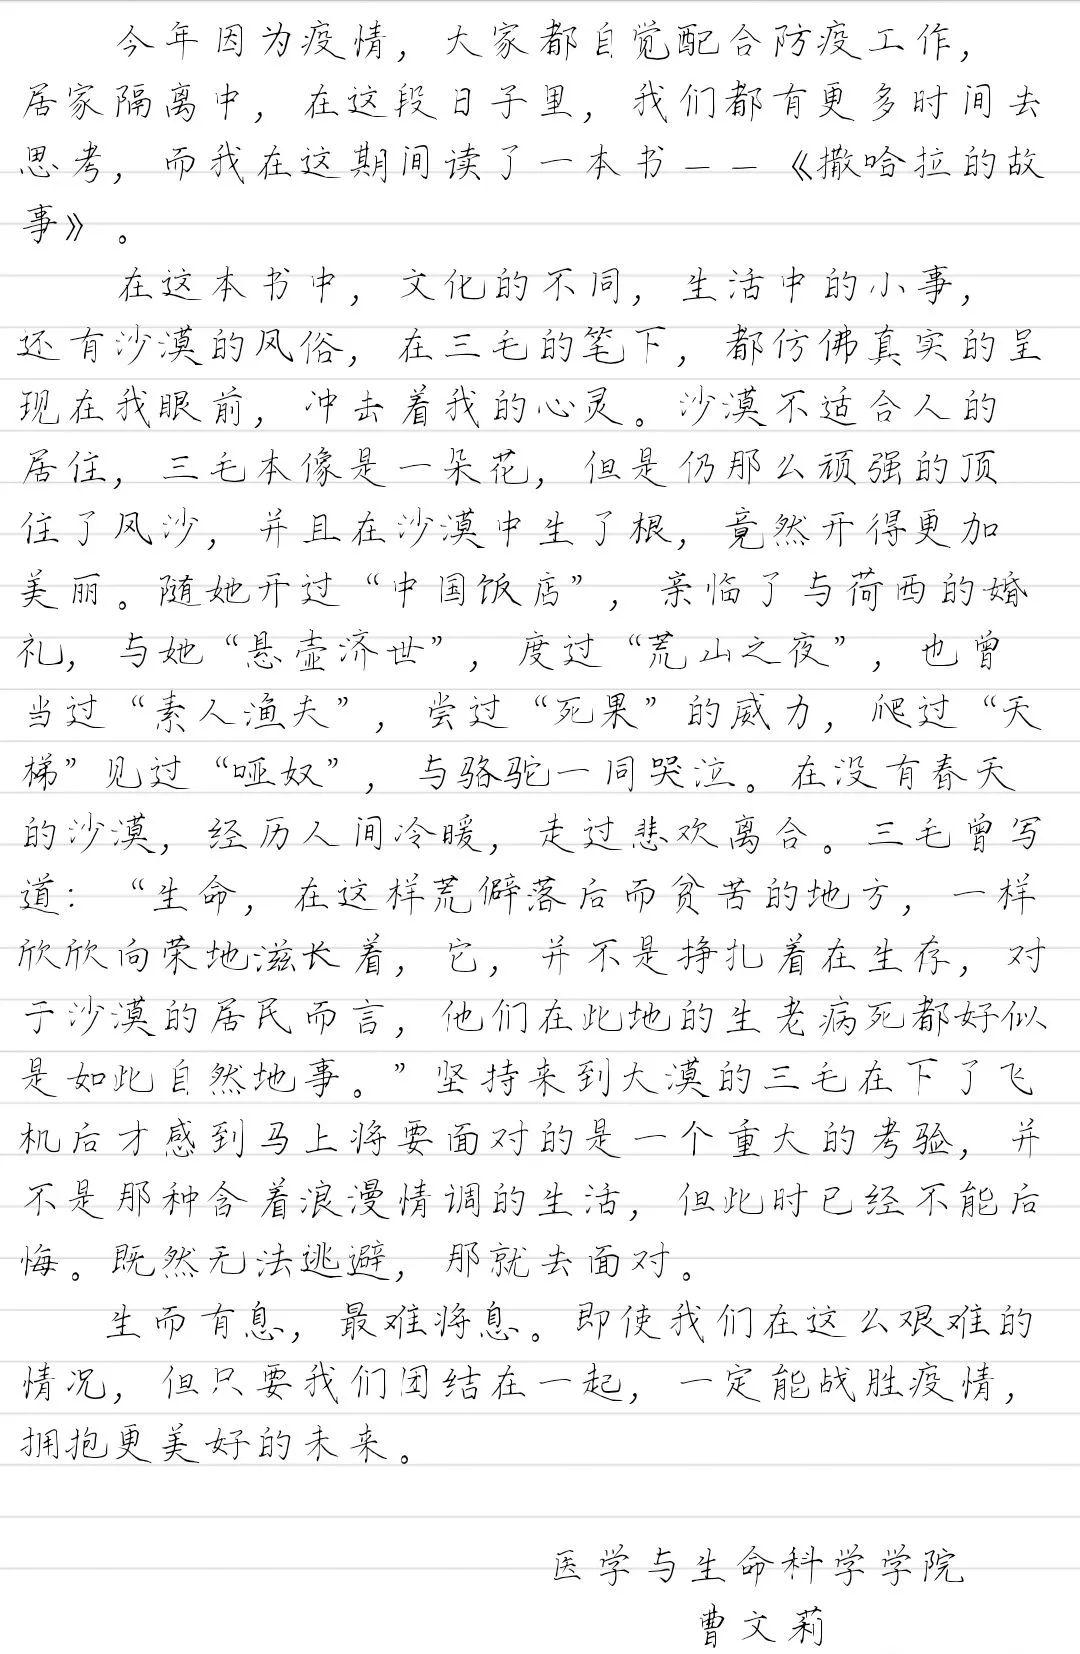 今年因为疫情，大家都自觉配合防疫工作，
居家隔离中，在这段日子里，我们都有更多时间去
思考，而我在这期间读了一本书——《撒哈拉的故
事》。
在这本书中，文化的不同，生活中的小事，
还有沙漠的风俗，在三毛的笔下，都仿佛真实的呈
现在我眼前，冲击着我的心灵。沙漠不适合人的
居住，三毛本像是一朵花，但是仍那么顽强的顶
住了风沙，并且在沙漠中生了根，竟然开得更加
美丽。随她开过“中国饭店”，亲临了与荷西的婚
礼，与她“悬壶济世”，度过“荒山之夜”，也曾
当过“素人渔夫”，尝过“死果”的威力，爬过“天
梯”见过“哑奴”，与骆驼一同哭泣。在没有春天
的沙漠，经历人间冷暖，走过悲欢离合。三毛曾写
道：“生命，在这样荒僻落后而贫苦的地方，一样
欣欣向荣地滋长着，它，并不是挣扎着在生存，对
于沙漠的居民而言，他们在此地的生老病死都好似
是如此自然地事。”坚持来到大漠的三毛在下了飞
机后才感到马上将要面对的是一个重大的考验，并
不是那种含着浪漫情调的生活，但此时已经不能后
悔。既然无法逃避，那就去面对。
生而有息，最难将息。即使我们在这么艰难的
情况，但只要我们团结在一起，一定能战胜疫情，
拥抱更美好的未来。
医学与生命科学学院
曹文莉